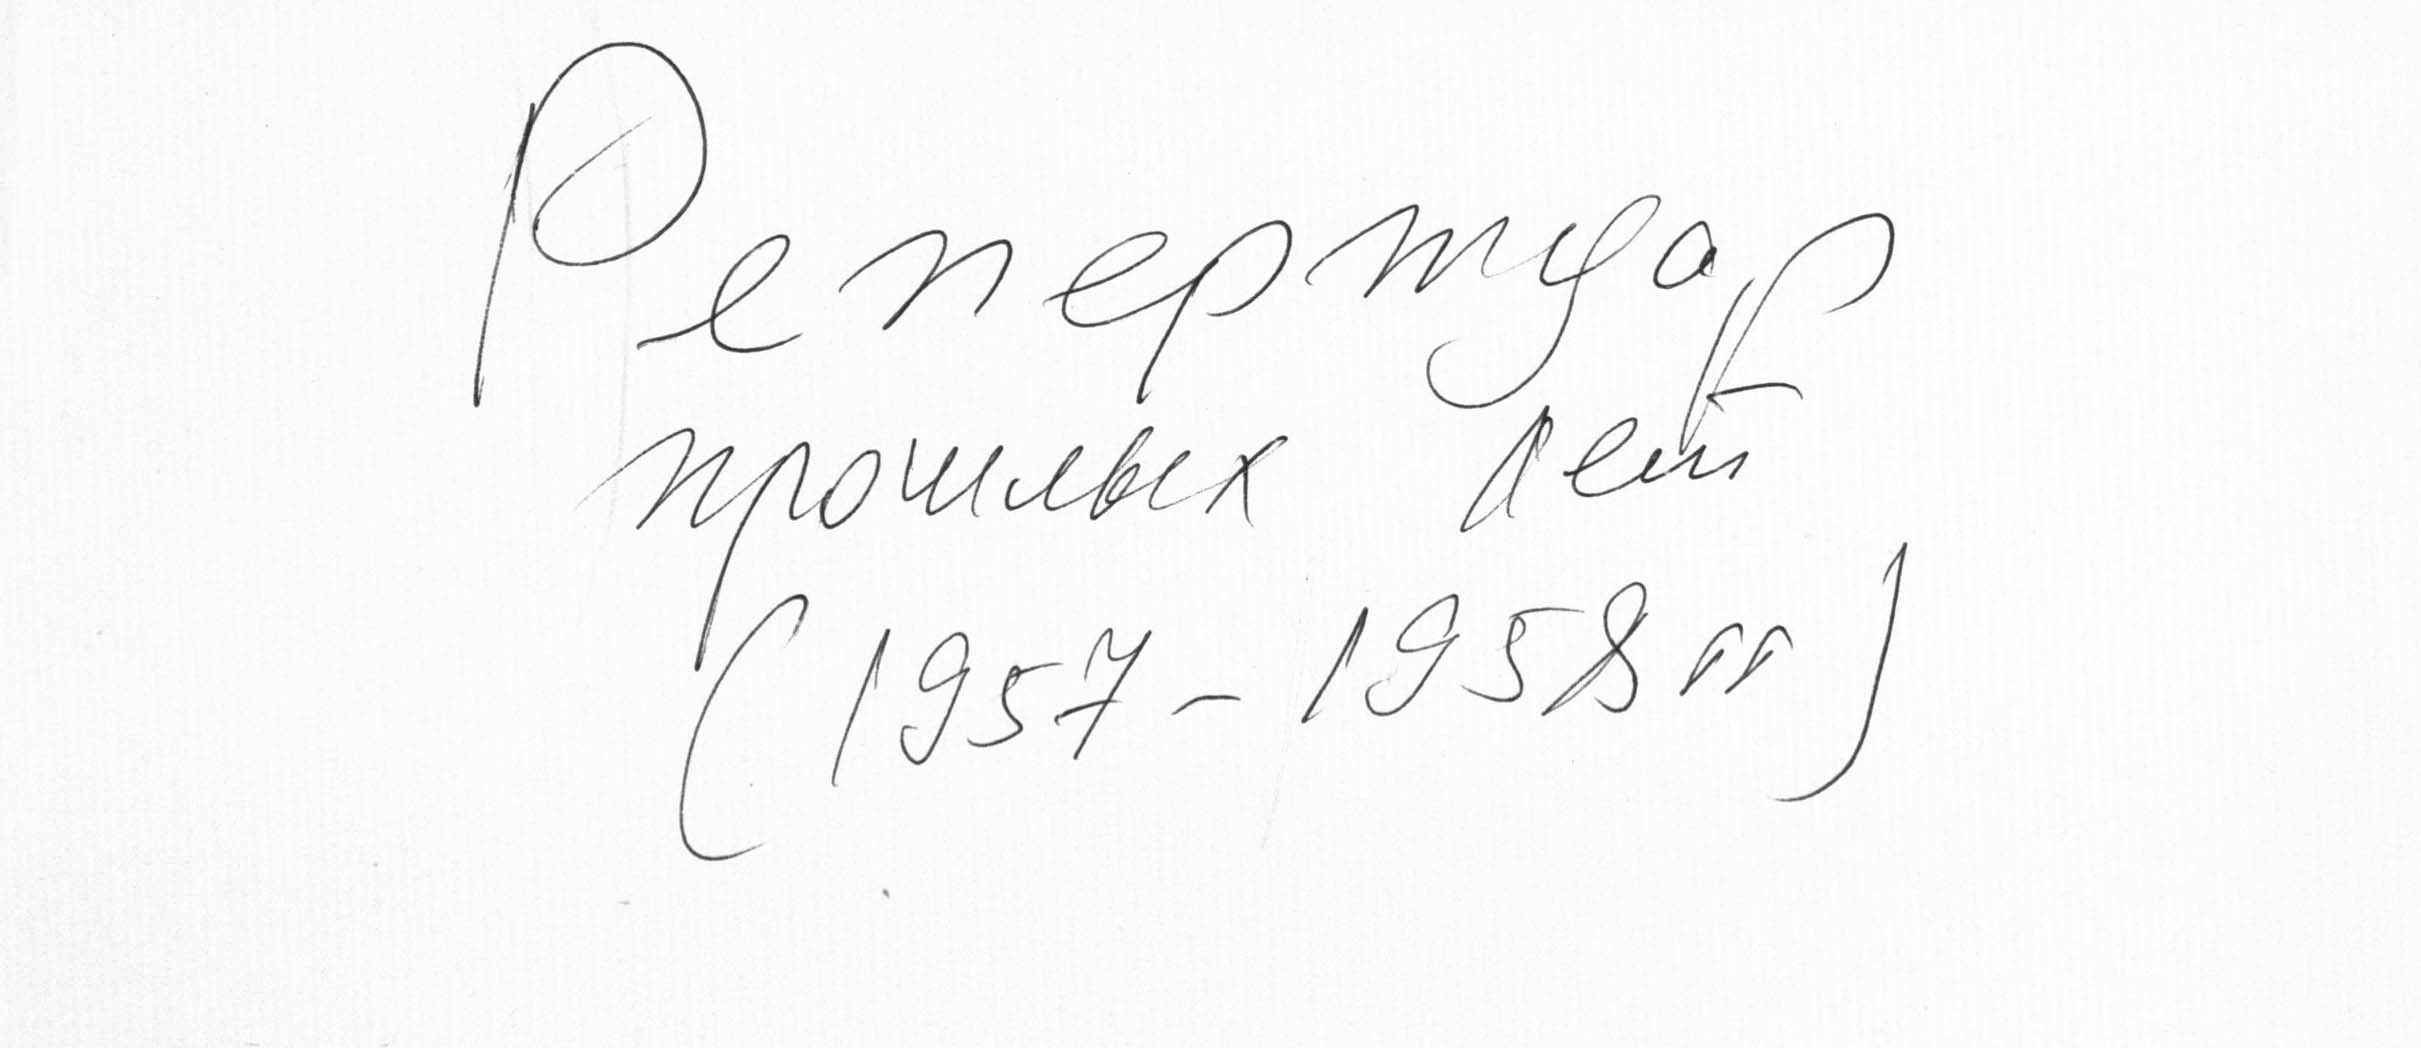 Репертуар
прошлых лет
(1957-1958гг)